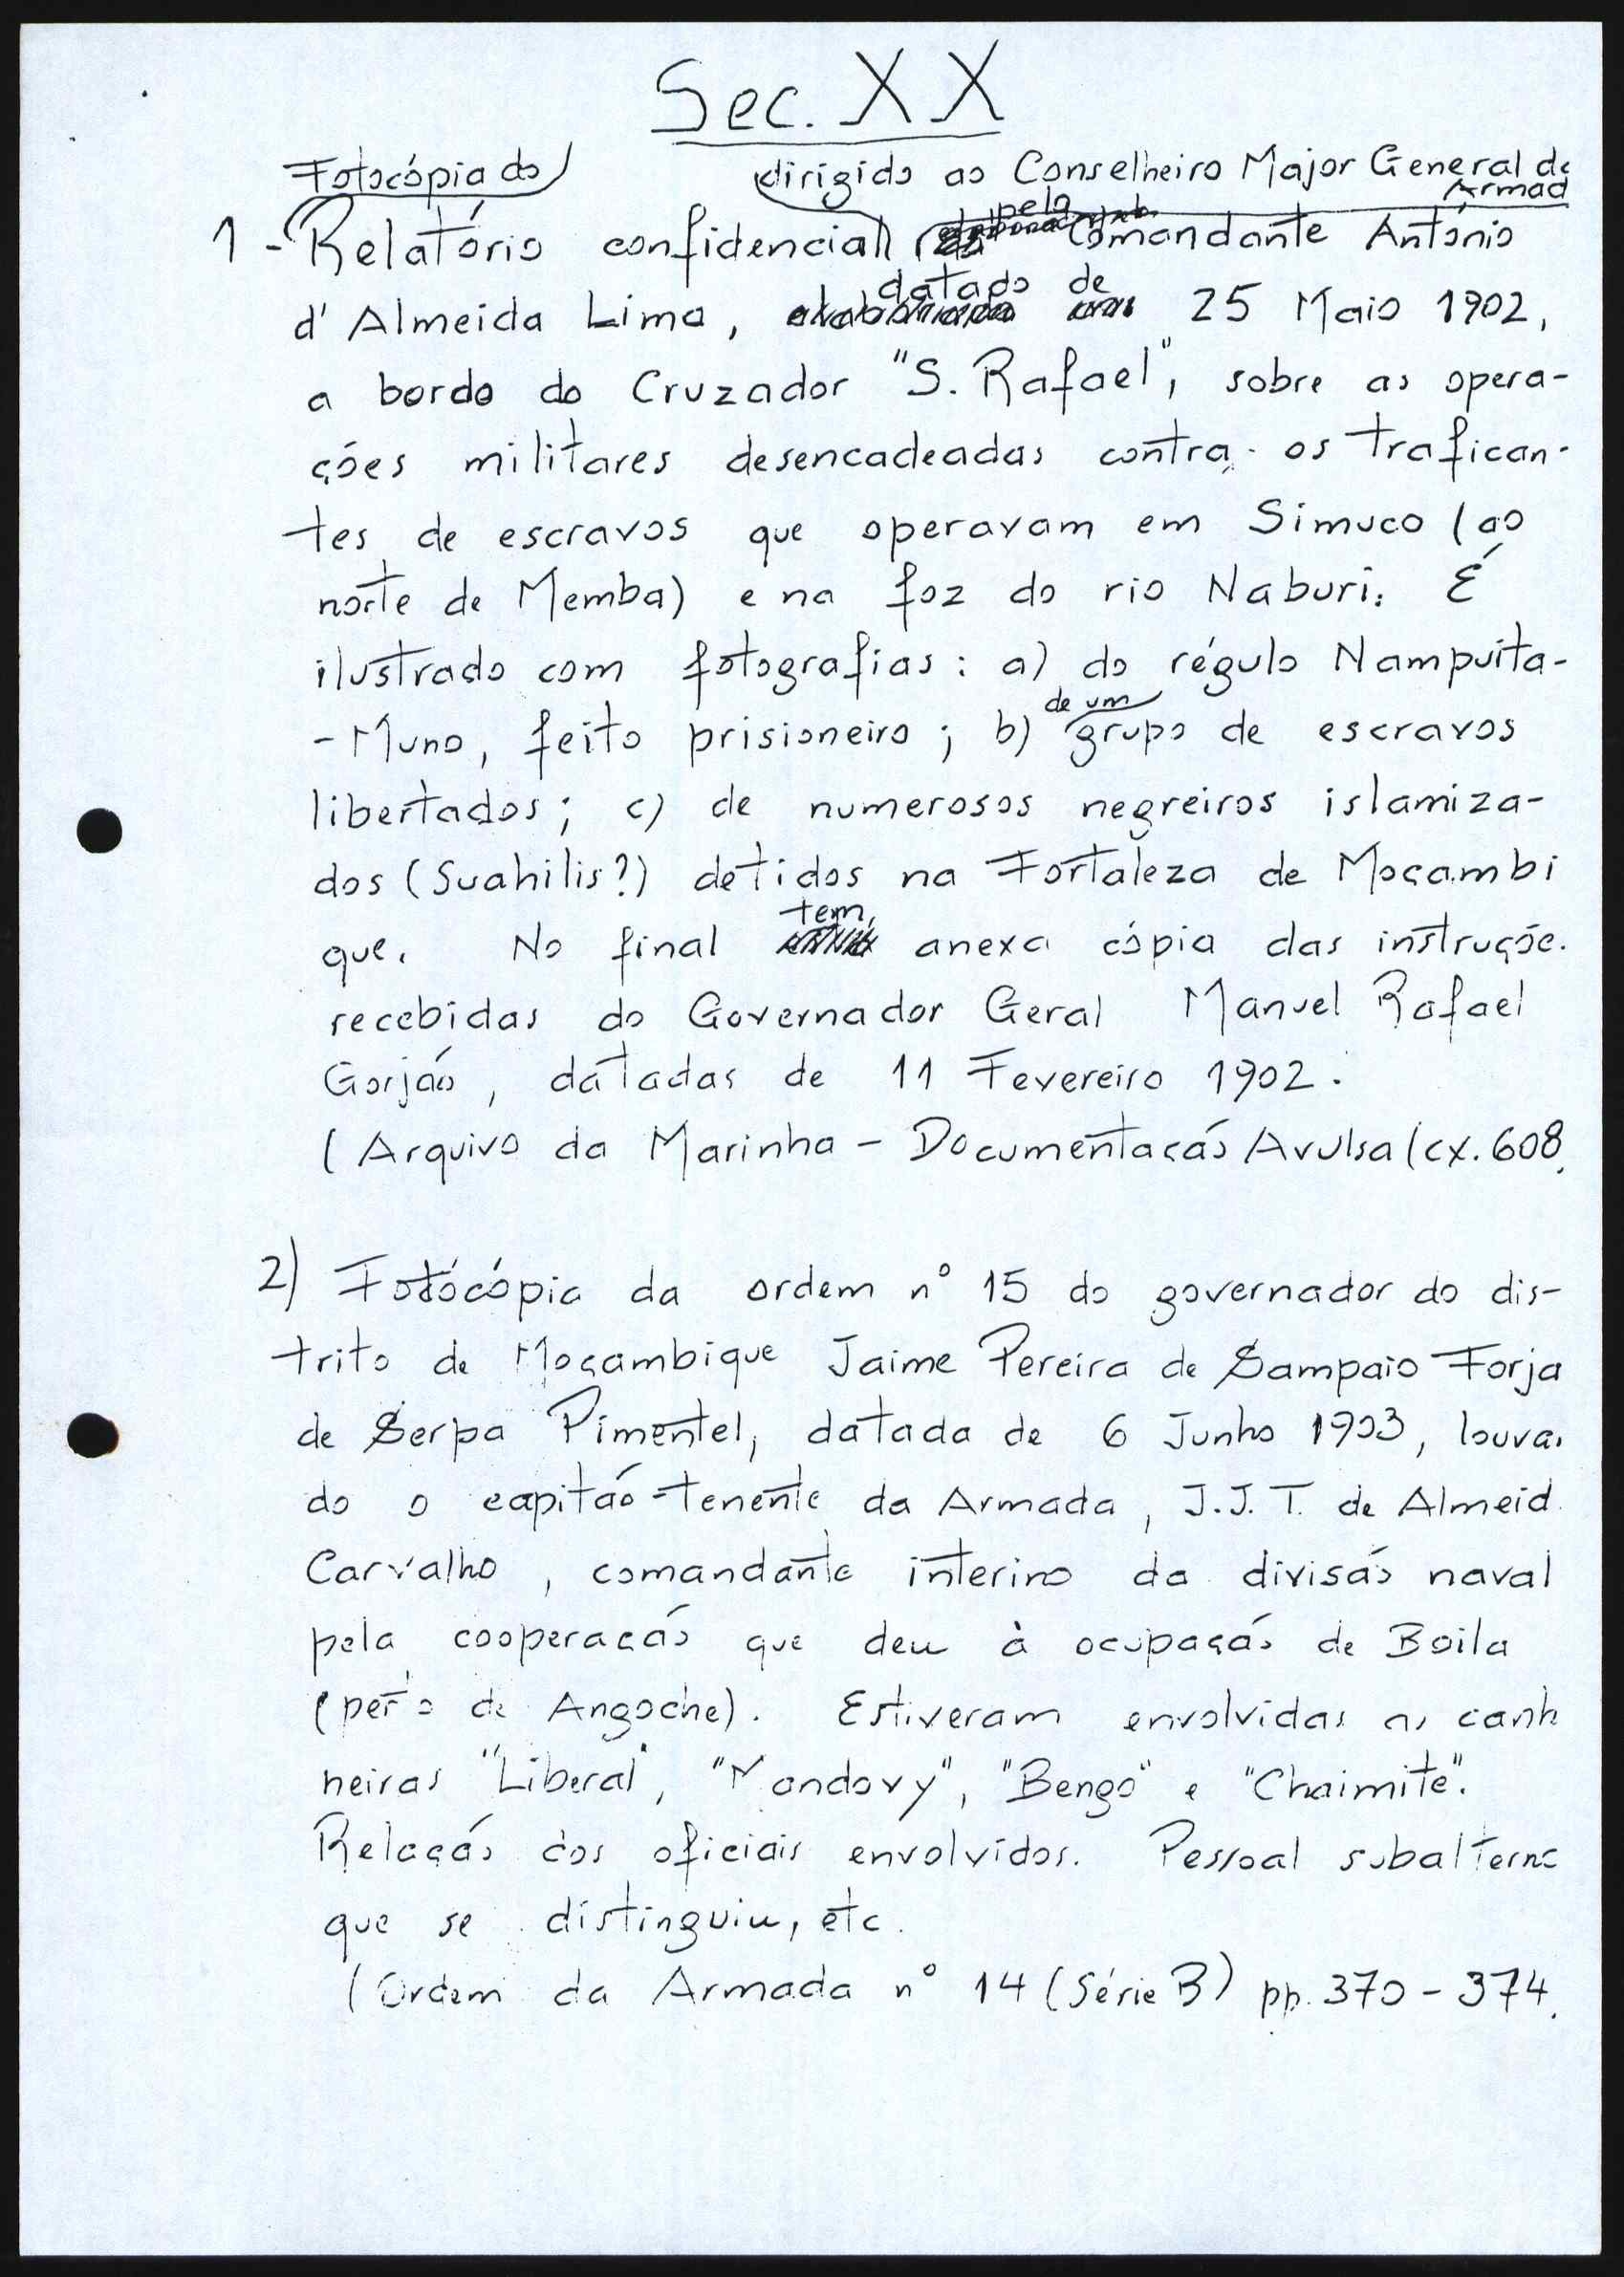 Sec. XX
Fotocópia do dirigido ao Conselheiro Major General da
Armad
pelo
1 - Relatório confidencial Comandante António
datado de
d'Almeida Lima, 25 Maio 1902,
a bordo do Cruzador "S. Rafael", sobre as opera-
ções militares desencadeadas contra os trafican-
tes de escravos que operavam em Simuco (ao
norte de Memba) e na foz do rio Naburi. É
ilustrado com fotografias: a) do régulo Nampuita-
de um
-Muno, feito prisioneiro; b) grupo de escravos
libertados; c) de numerosos negreiros islamiza-
dos (Suahilis?) detidos na Fortaleza de Moçambi
tem
que. No final anexa cópia das instruçõe
recebidas do Governador Geral Manuel Rafael
Gorjão, datadas de 11 Fevereiro 1902.
(Arquivo da Marinha - Documentação Avulsa (cx. 608
2) Fotócópia da ordem nº 15 do governador do dis-
trito de Moçambique Jaime Pereira de Sampaio Forja
de Serpa Pimentel, datada de 6 Junho 1903, louva
do o capitão-tenente da Armada, J.J.T. de Almeid
Carvalho, comandante interino da divisão naval
pela cooperação que deu à ocupação de Boila
(perto de Angoche). Estiveram envolvidas as canh
neiras "Liberal", "Mandovy", "Bengo" e "Chaimite".
Relação dos oficiais envolvidos. Pessoal subalterno
que se distinguiu, etc.
(Ordem da Armada nº 14 (Série B) pp. 370-374.